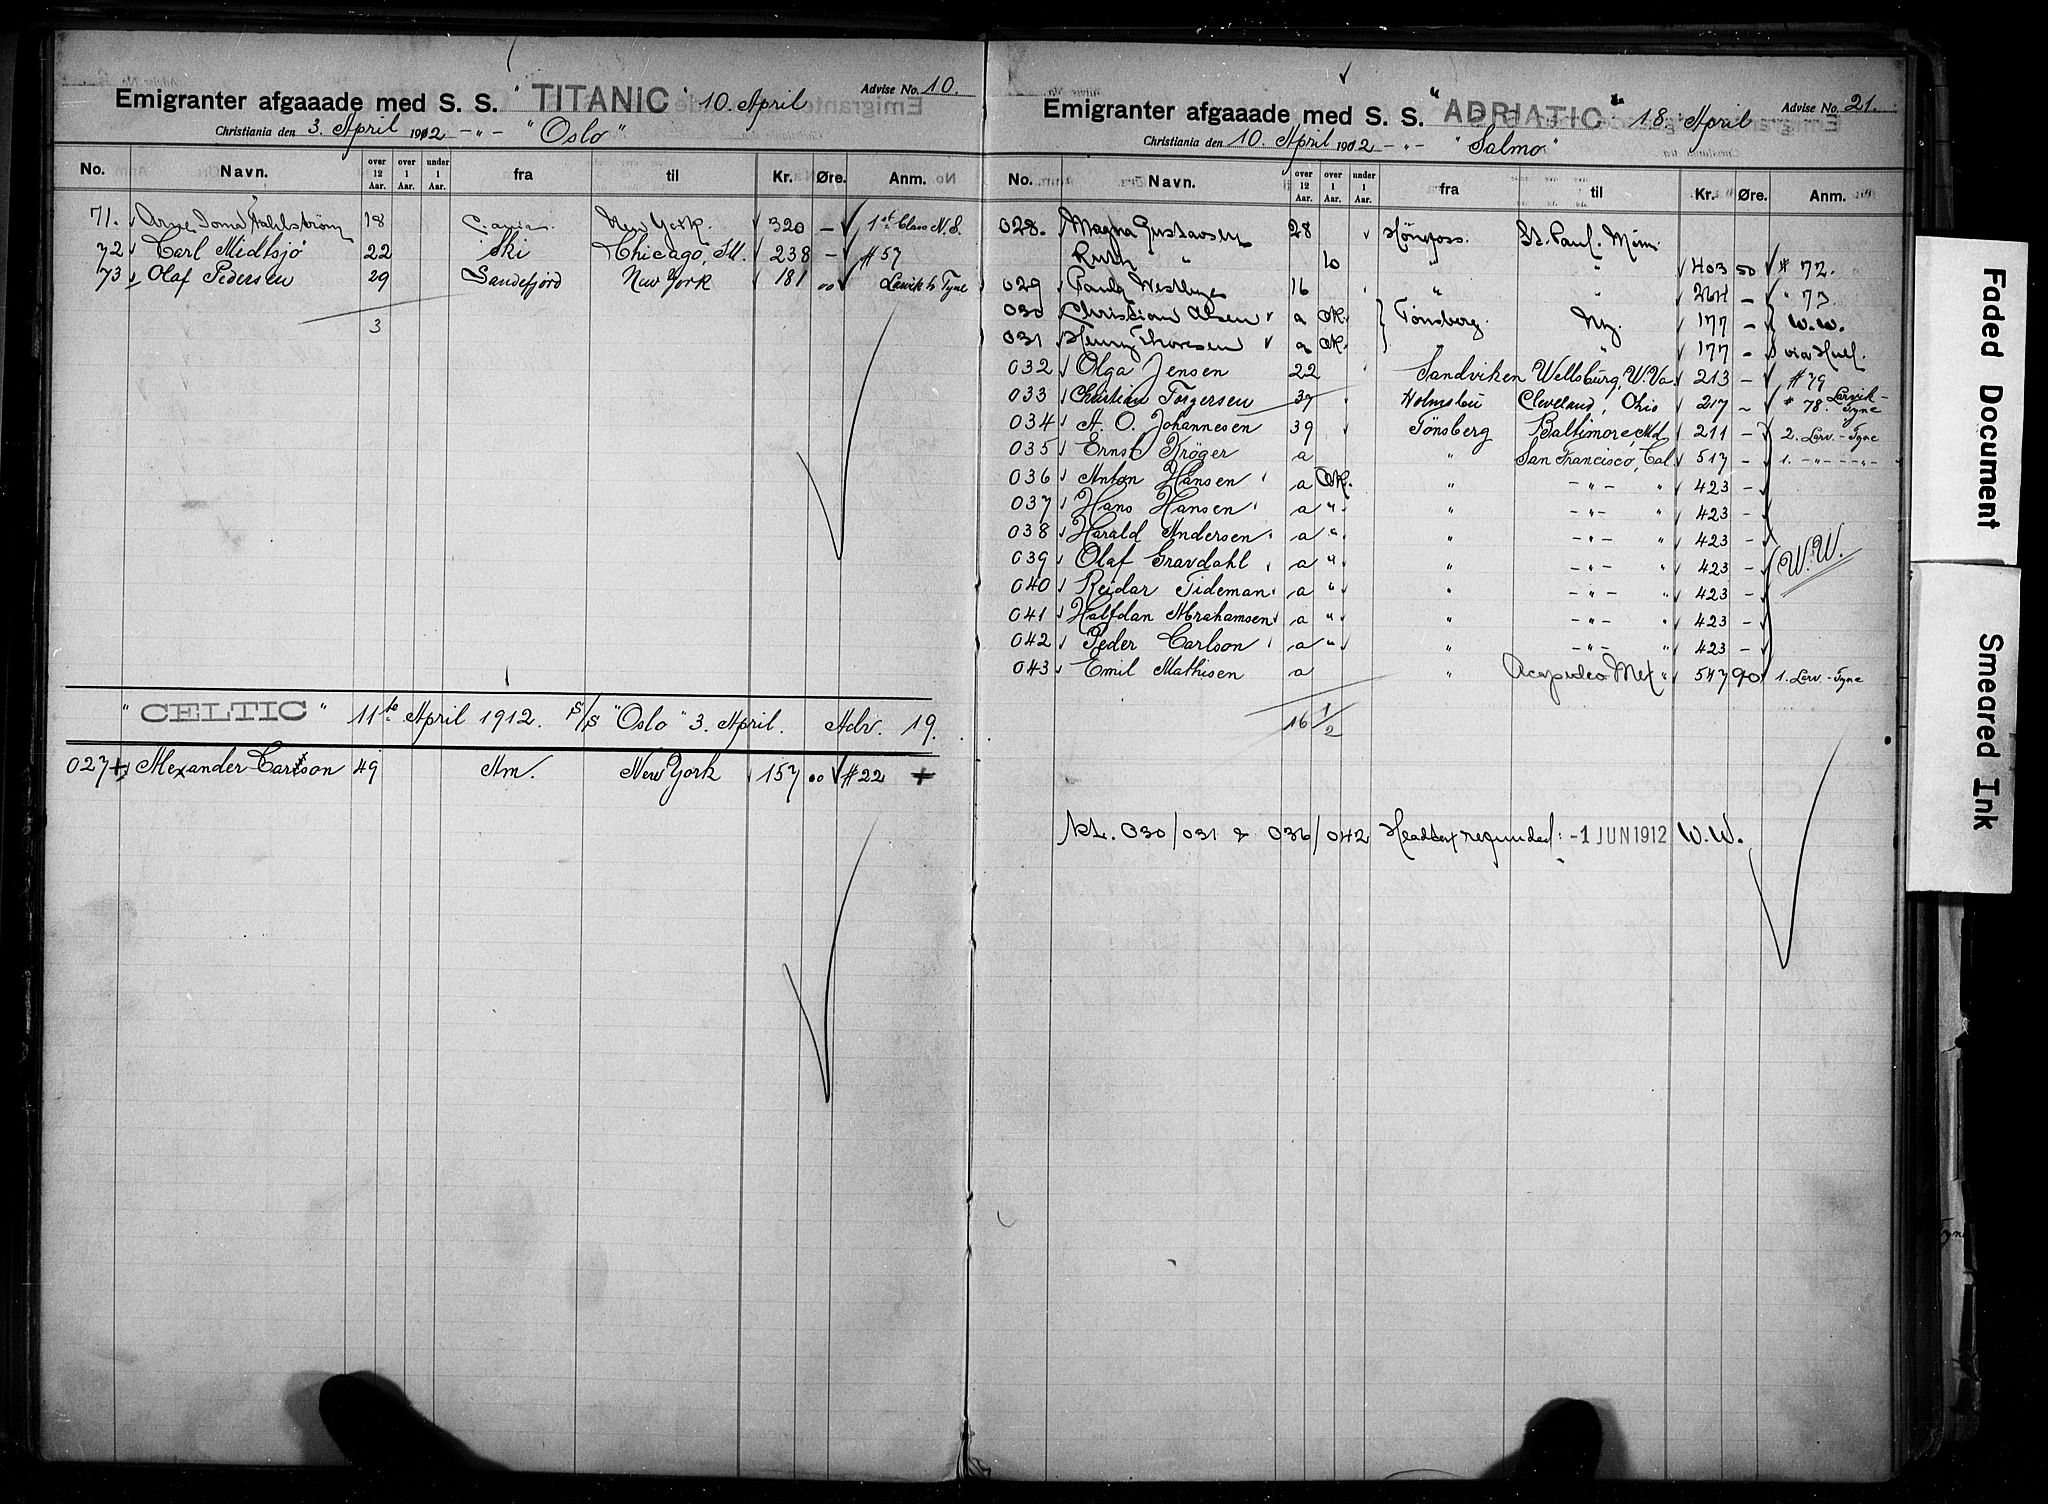 Emigranter afgaaade med S. S. "TITANIC" 10. April Advise No. 10.
Christiania den 3. April 1912 -"- "Oslo"
No. Navn. over 12 Aar. over 1 Aar. under 1 Aar. fra til Kr. Øre. Anm.
71. Arne Joma Fahlstrøm 18 C.ania New York. 320 — 1st Class N.S.
72 Carl Midtsjø 22 Ski Chicago, Ill. 238 — #57
73 Olaf Pedersen 29 Sandefjord New York 181 00 Larvik to Tyne
3
"CELTIC" 11te April 1912. S/S "Oslo" 3. April. Adv. 19.
027 + Alexander Carlson 49 Am. New York 157 00 #22 +
Emigranter afgaaade med S. S. "ADRIATIC" 18 April Advise No. 21.
Christiania den 10. April 1912 -"- "Salmo"
No. Navn. over 12 Aar. over 1 Aar. under 1 Aar. fra til Kr. Øre. Anm.
028. Magna Gustavsen 28 Hönefoss. St. Paul. Minn.
Ruth " 10 " " 403 50 # 72.
029 Paula 16 " " 264 — " 73
030 Christian Olsen a OK. Tönsberg. Ny. 177 — W.W.
031 Henry Thoresen a OK. " " 177 — via Hull.
032 Olga Jensen 22 Sandviken Wellsburg, W. Va. 213 — #79
033 Christian Torgersen 39 Holmsbu Cleveland, Ohio 217 — # 78. Larvik-Tyne
034 A. O. Johannesen 39 Tönsberg Baltimore, Md. 211 — 2. Larv.-Tyne
035 Ernst Kröger a " San Francisco, Cal. 517 — 1. -"- -"-
036 Anton Hansen a OK. " -"- " 423 —
037 Hans Hansen a " " -"- " 423 —
038 Harald Andersen a " " -"- " 423 —
039 Olaf Gravdahl a " " -"- " 423 — W.W.
040 Reidar Tideman a " " -"- " 423 —
041 Halfdan Abrahamsen a " " -"- " 423 —
042 Peder Carlson a " " -"- " 423 —
043 Emil Mathisen a " Mex " 547 90 1. Larv.-Tyne
16 1/2
kt. 030/031 & 036/042 Headtax refunded: -1 JUN 1912 W.W.
Faded Document
Smeared Ink